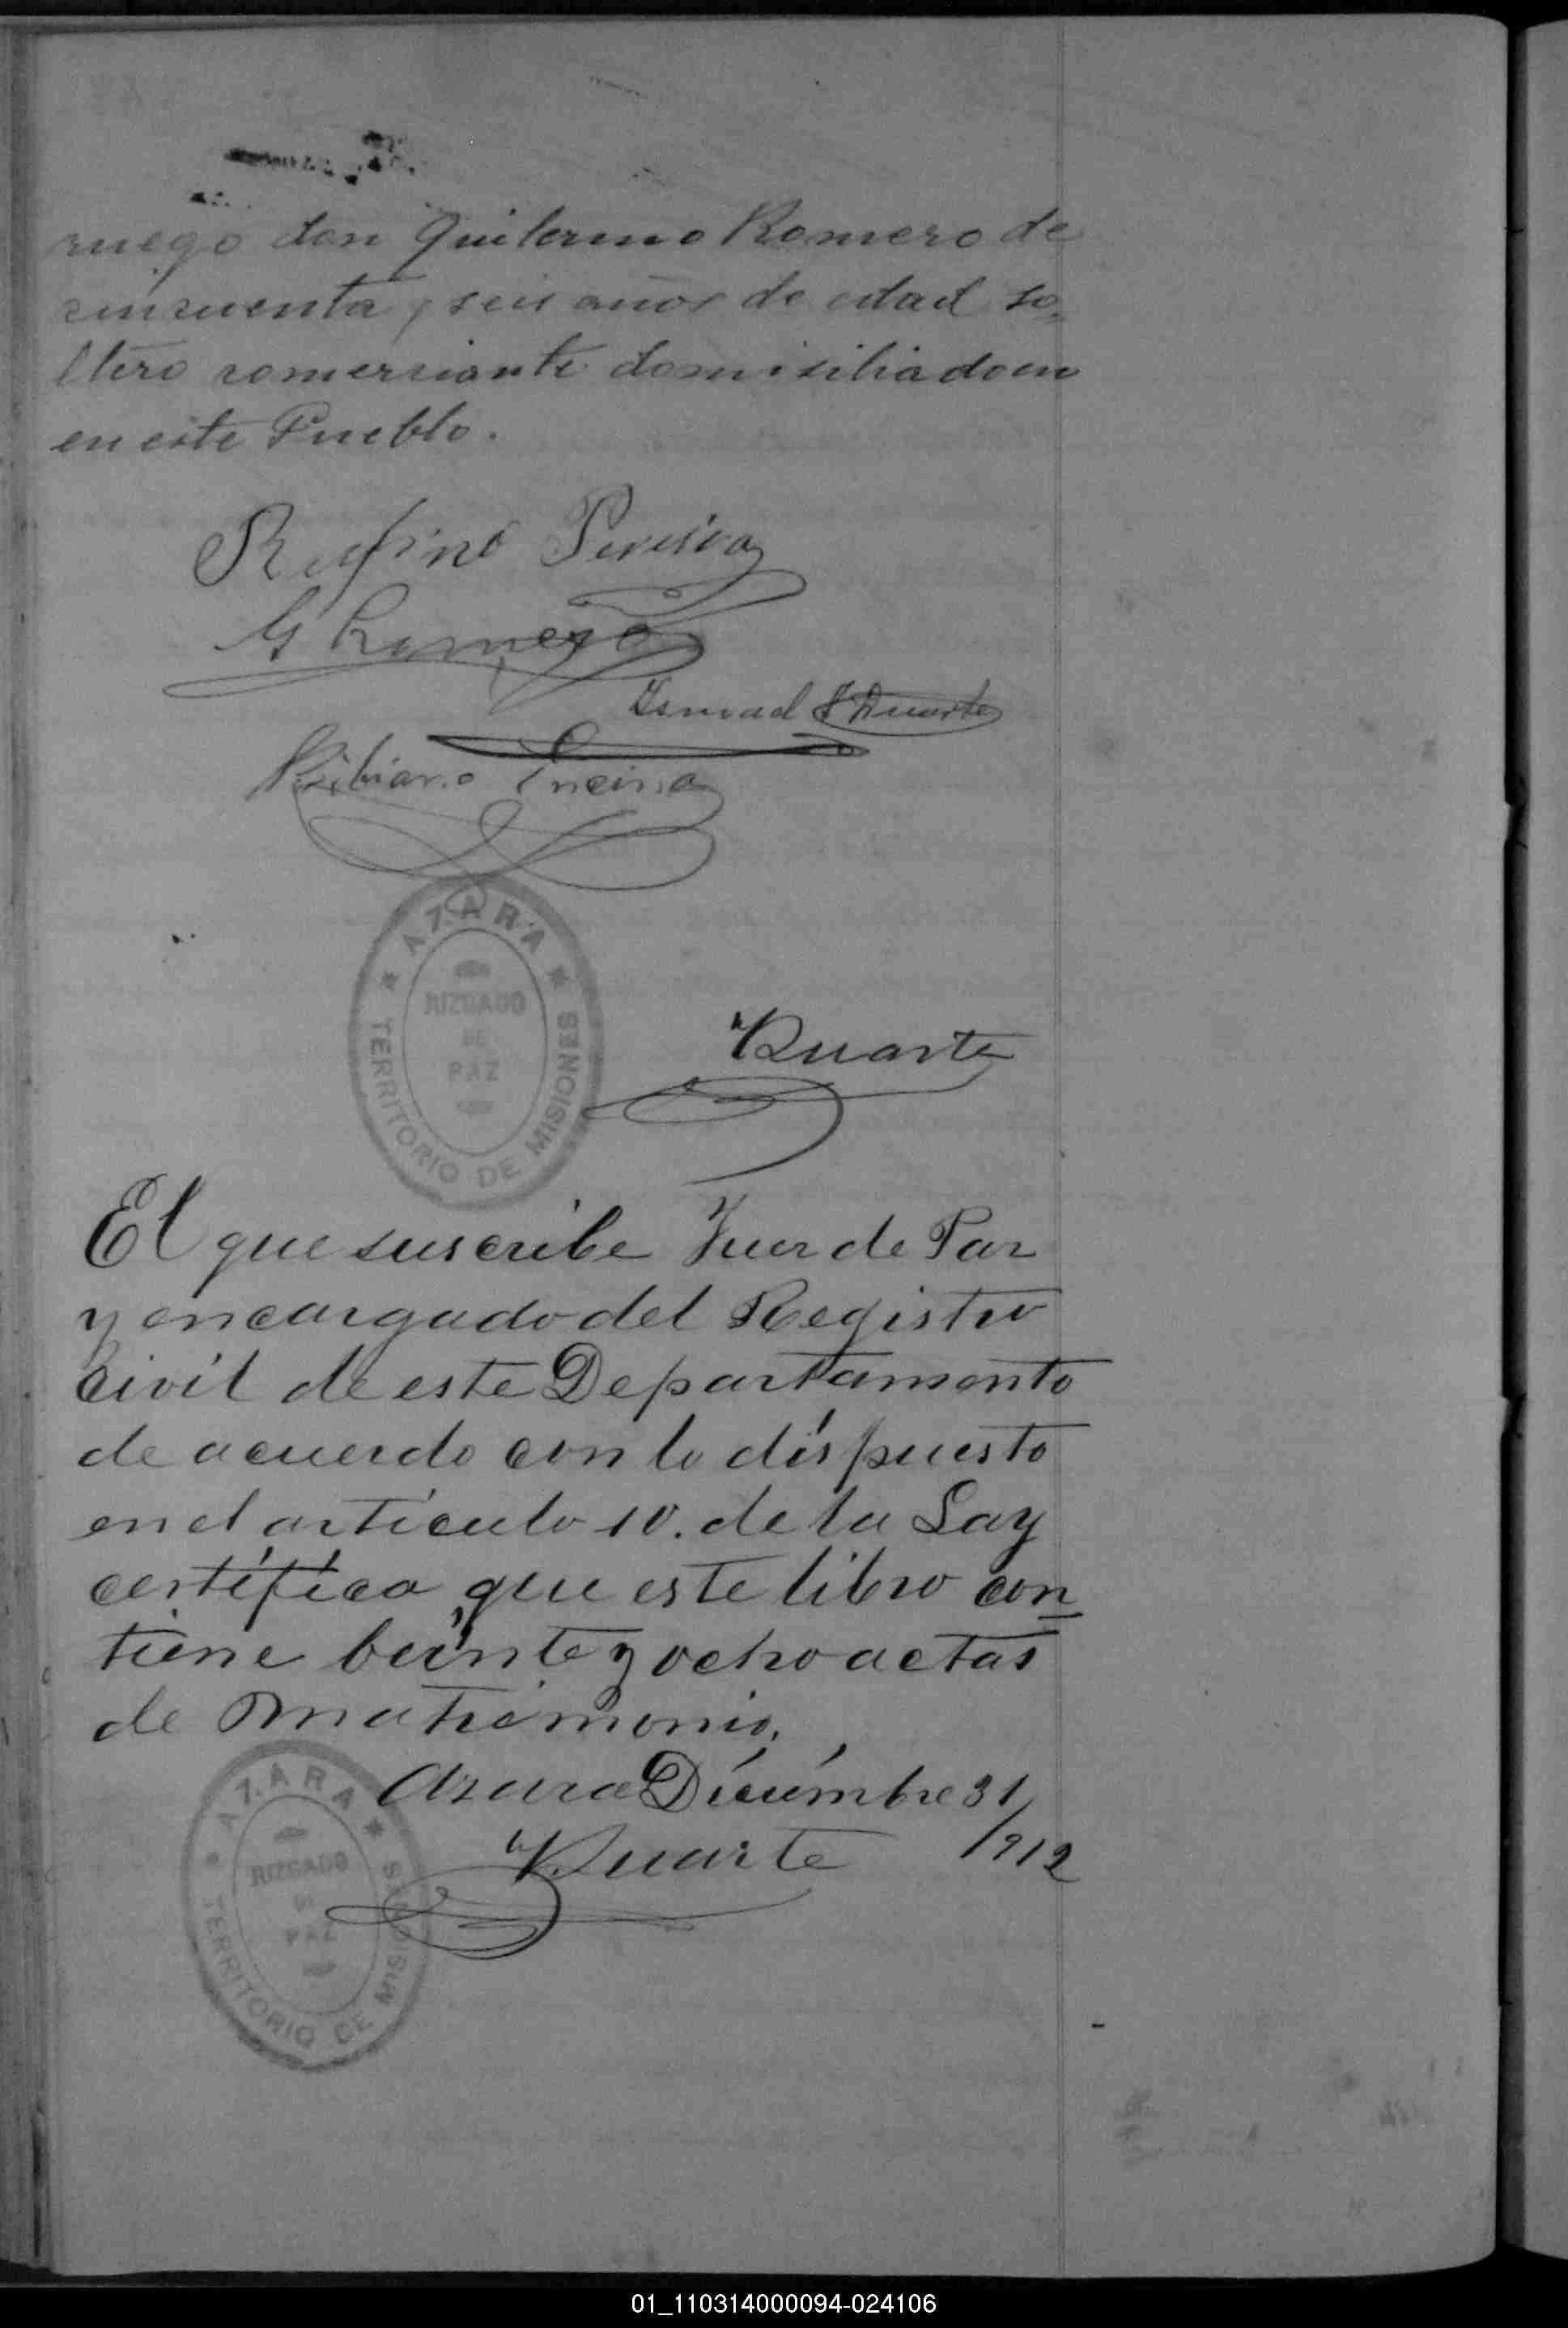 ruego don Guilermo Romero de
cincuenta y seis años de edad so-
ltero comerciante domisiliado en
en este Pueblo.
Rufino Pereira
G Romero
Ismael Duarte
Encina
AZARA
JUZGADO
DE
PAZ
TERRITORIO DE MISIONES
Duarte
El que suscribe Juez de Paz
y encargado del Registro
Civil de este Departamento
de acuerdo con lo dispuesto
en el articulo 10. de la Ley
certifica, que este libro con
tiene beinte y ocho actas
de Matrimonio.
Azara Diciembre 31
/912
Duarte
AZARA
JUZGADO
DE
PAZ
TERRITORIO DE MISIONES
01_110314000094-024106